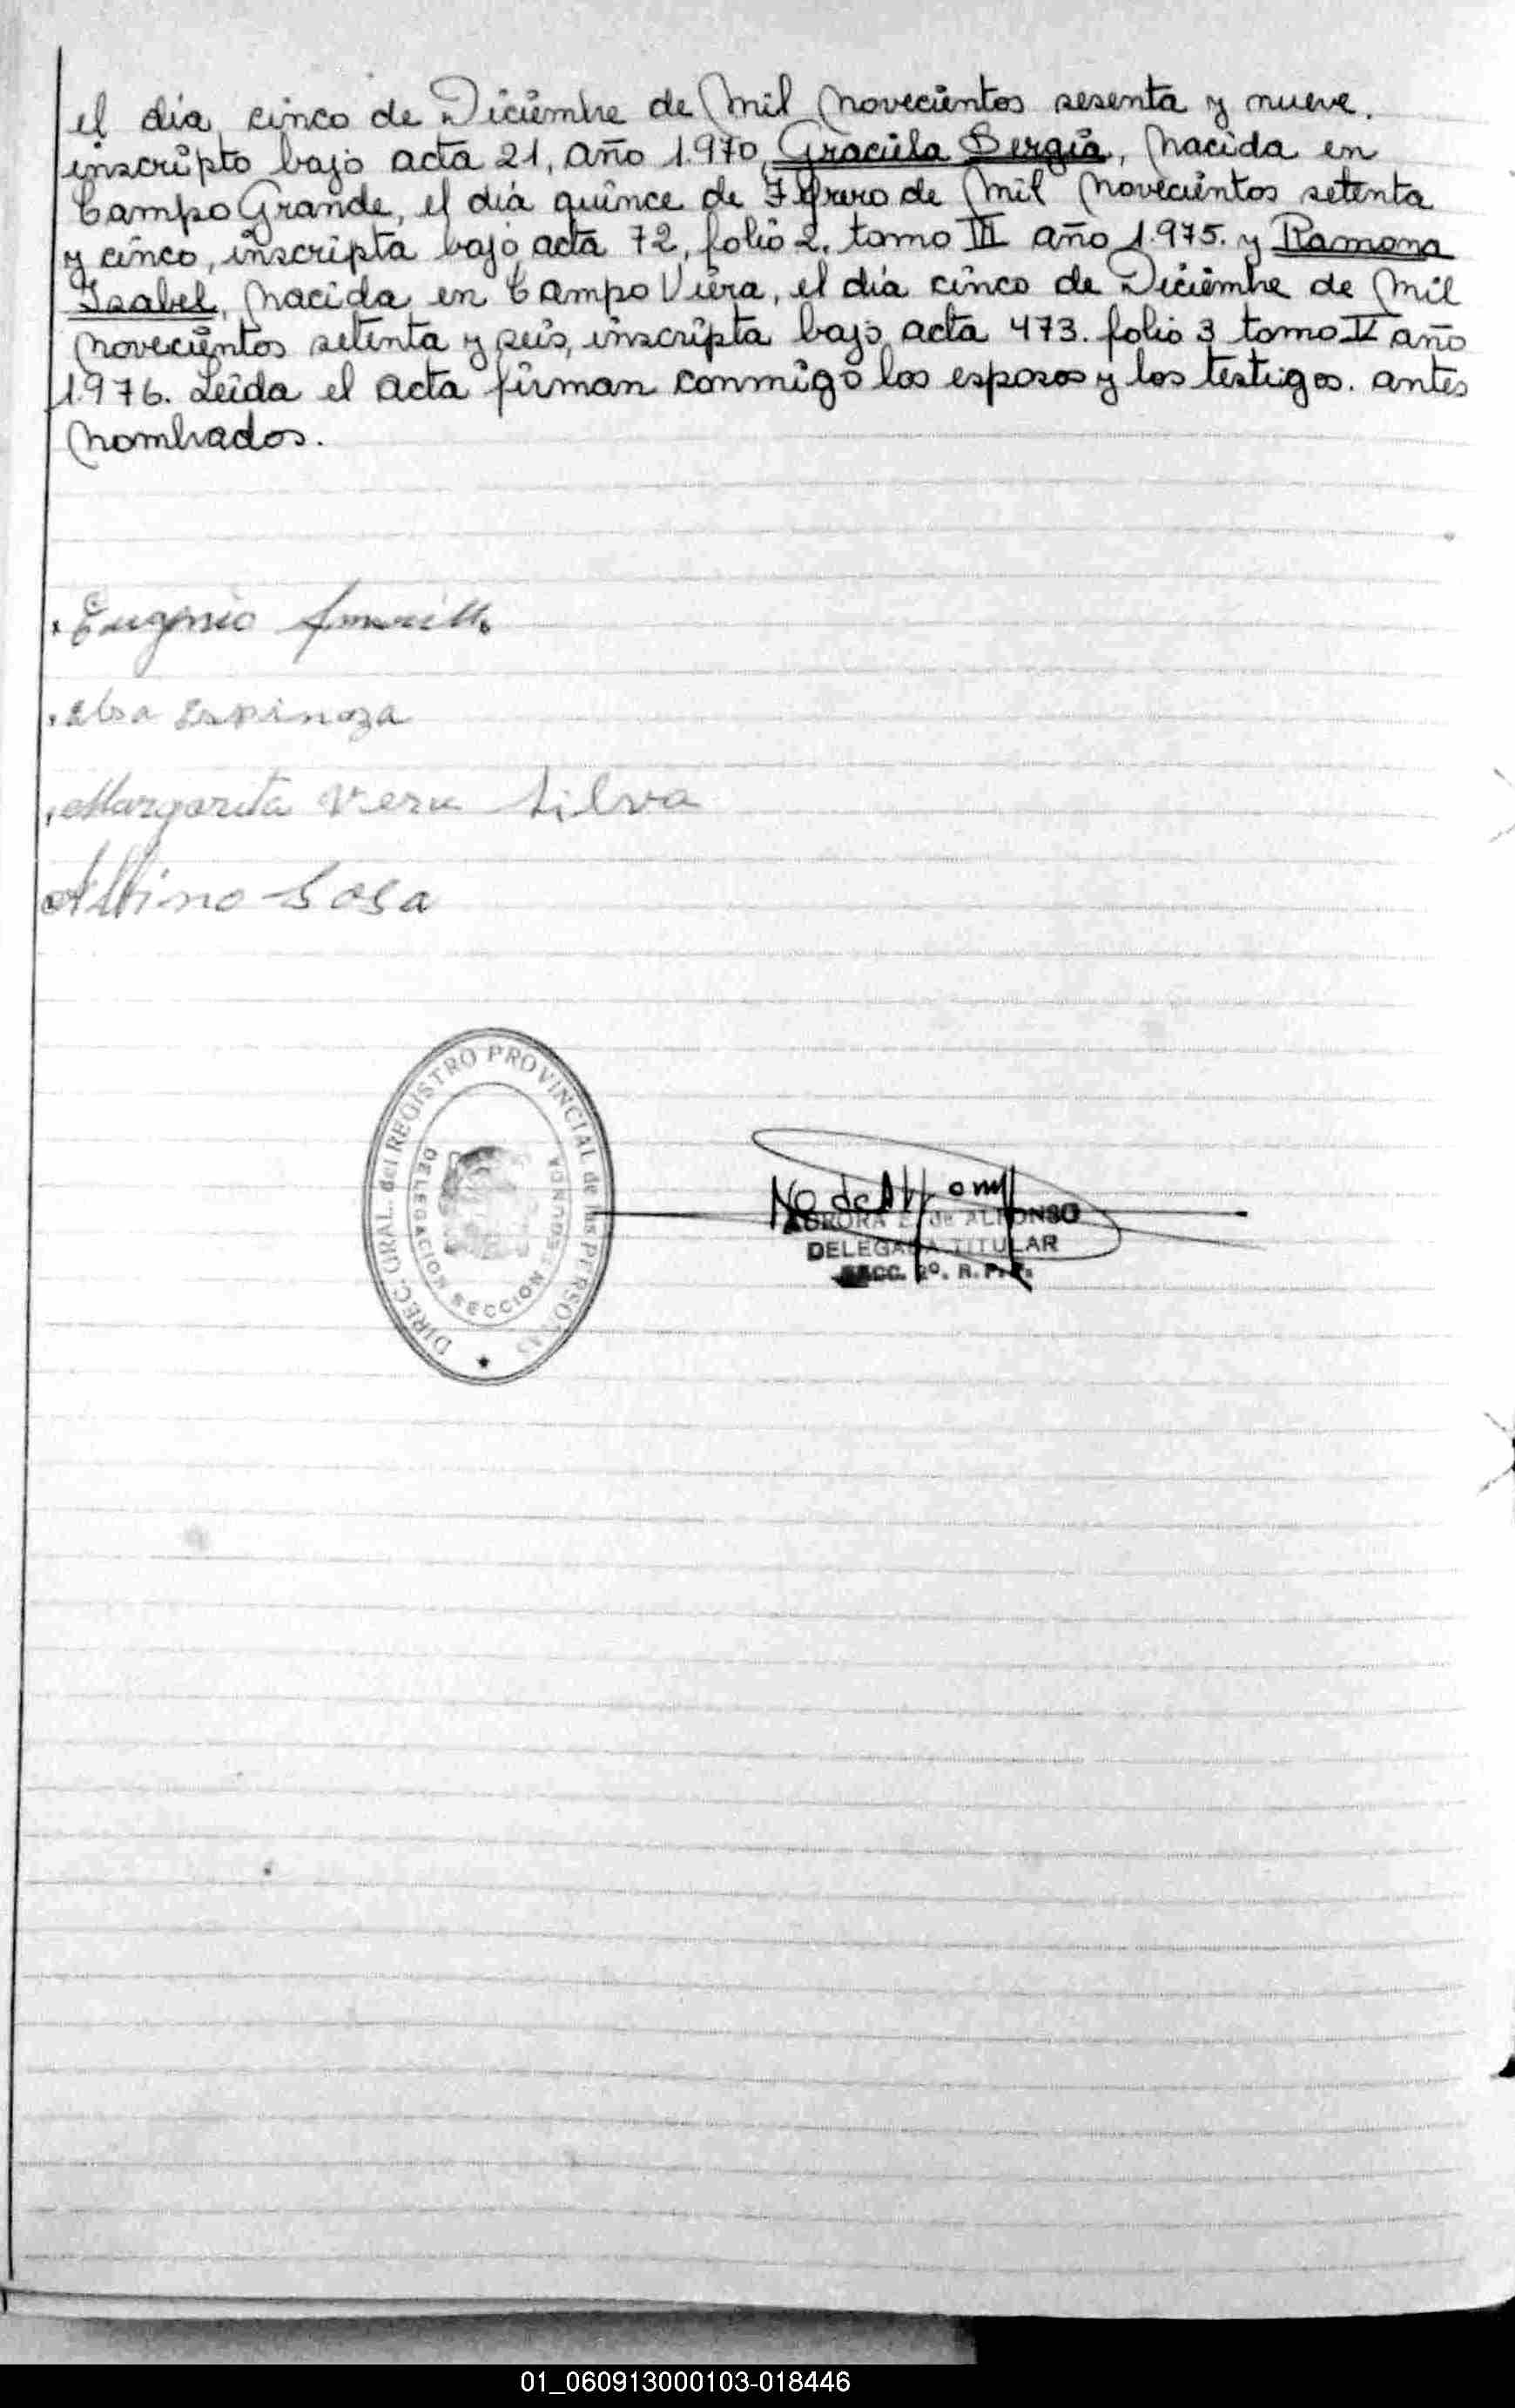 el día cinco de Diciembre de Mil Novecientos sesenta y nueve.
inscripto bajo acta 21, año 1.970, Graciela Sergia, Nacida en
Campo Grande, el día quince de Febrero de Mil Novecientos setenta
y cinco, inscripta bajo acta 72, folio 2. tomo III año 1.975. y Ramona
Isabel, Nacida en Campo Viera, el día cinco de Diciembre de Mil
Novecientos setenta y seis, inscripta bajo acta 473. folio 3 tomo IV año
1.976. Leída el acta firman conmigo los esposos y los testigos. antes
Nombrados.
Eugenio
Elsa Espinoza
Margarita Vera Silva
Albino Sosa
DIREC. GRAL. del REGISTRO PROVINCIAL de las PERSONAS
DELEGACION SECCION SEGUNDA
AURORA E. de ALFONSO
DELEGADA TITULAR
SECC. 2º. R. P. P.
01_060913000103-018446